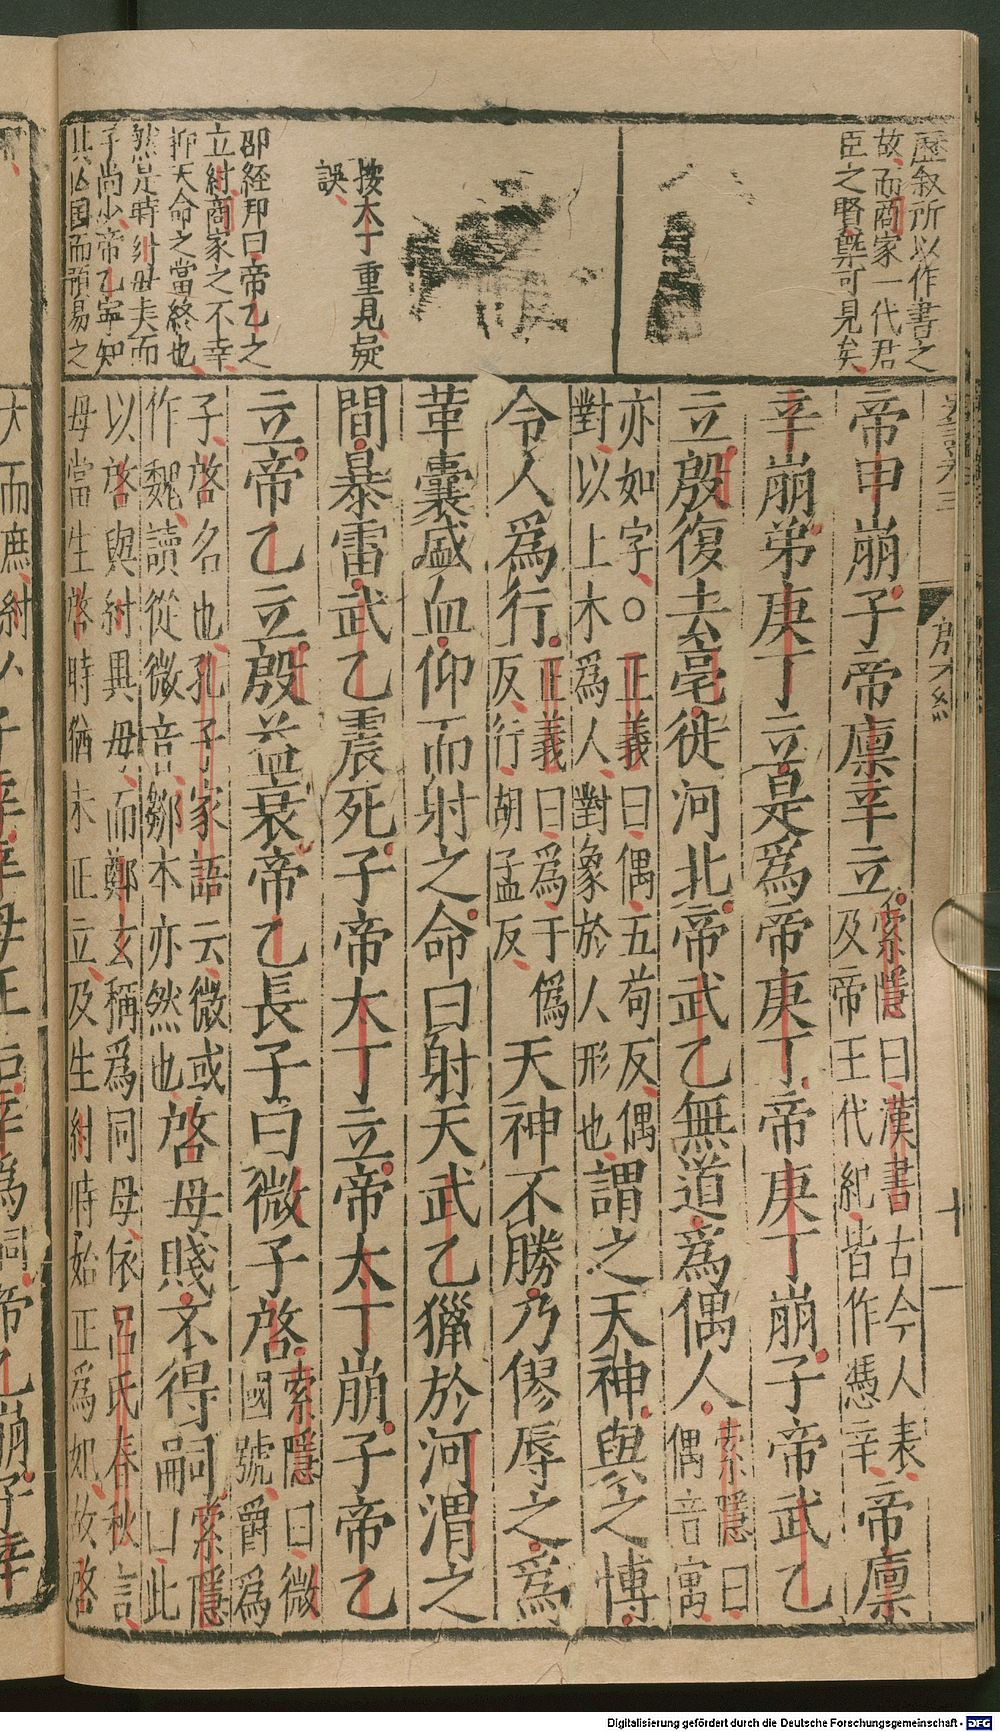 歷敘所以作書之
故而商家一代君
臣之賢槩可見矣
按太丁重見疑
誤
邵經邦曰帝乙之
立紂商家之不幸
抑天命之當終也
然是時紂母夫而
子尚少帝乙寧知
其必國而預易之
殷本紀
十一
帝甲崩子帝廩辛立索隱曰漢書古今人表
及帝王代紀皆作憑辛帝廩
辛崩弟庚丁立是為帝庚丁帝庚丁崩子帝武乙
立殷復去亳徙河北帝武乙無道為偶人索隱曰
偶音寓
亦如字○正義曰偶五苟反偶
對以上木為人對象於人形也謂之天神與之博
令人為行正義曰為于偽
反行胡孟反天神不勝乃僇辱之為
革囊盛血仰而射之命曰射天武乙獵於河渭之
間暴雷武乙震死子帝太丁立帝太丁崩子帝乙
立帝乙立殷益衰帝乙長子曰微子啓索隱曰微
國號爵為
子啓名也孔子家語云微或
作魏讀從微音鄒本亦然也啓母賤不得嗣索隱
曰此
以啓與紂異母而鄭玄稱為同母依呂氏春秋言
母當生啓時猶未正立及生紂時始正為妃故啓
大而庶紂
Digitalisierung gefördert durch die Deutsche Forschungsgemeinschaft - DFG